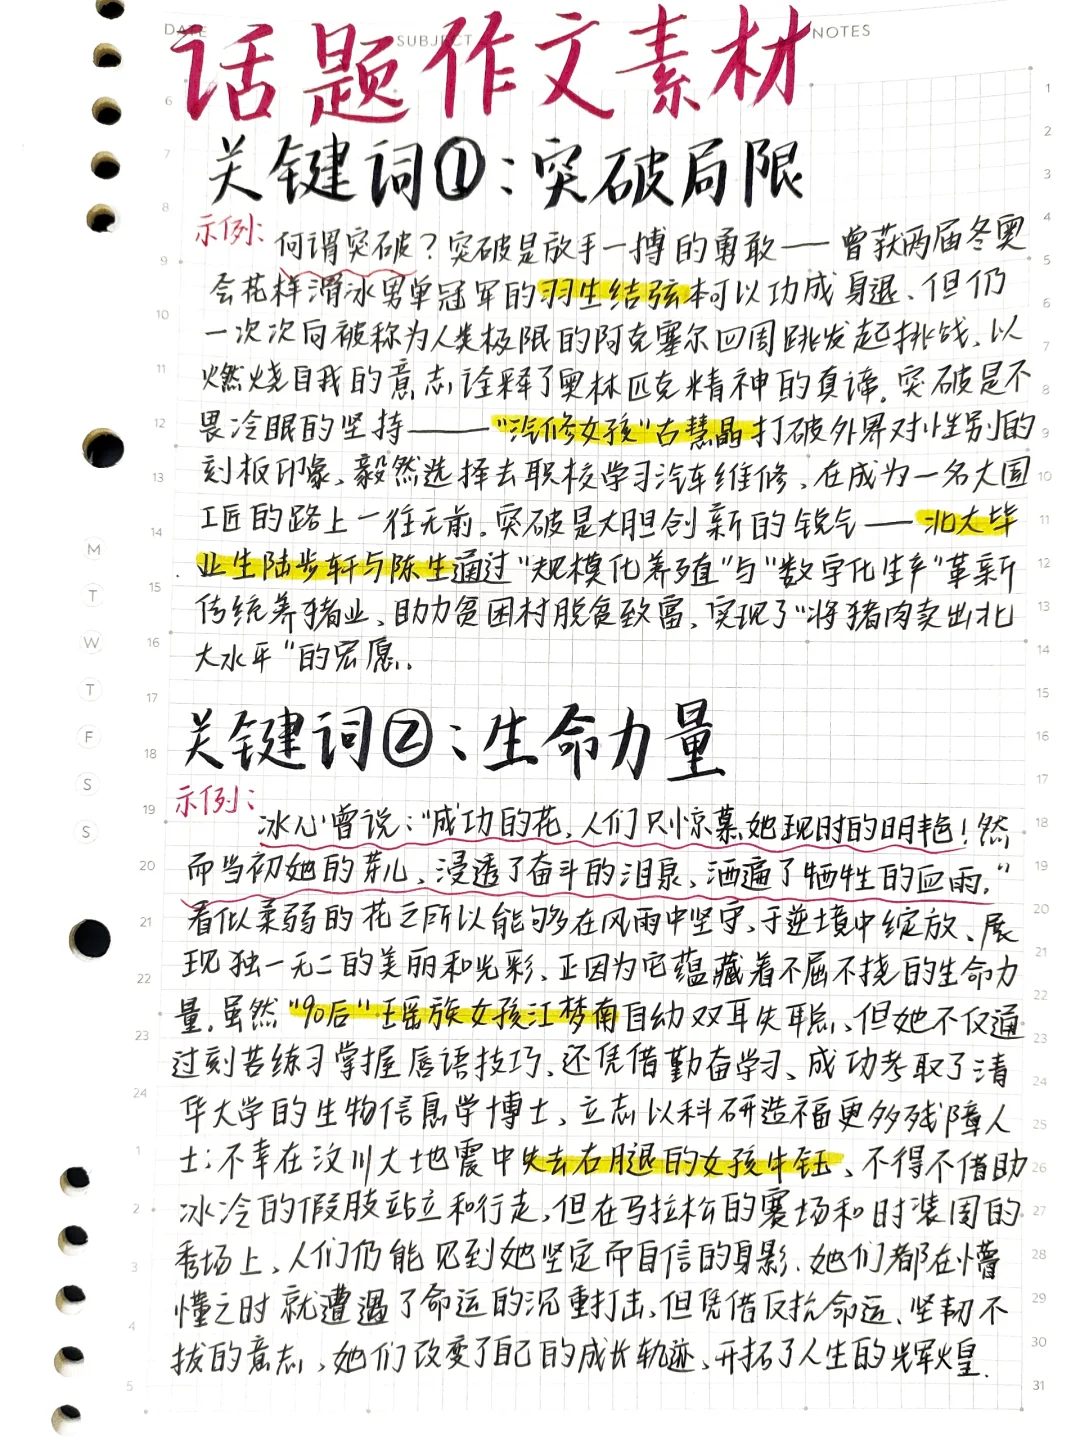 DATE
SUBJECT
NOTES
话题作文素材
关键词①:突破局限
示例:
何谓突破?突破是放手一搏的勇敢——曾获两届冬奥
会花样滑冰男单冠军的羽生结弦本可以功成身退、但仍
一次次向被称为人类极限的阿克塞尔四周跳发起挑战、以
燃烧自我的意志诠释了奥林匹克精神的真谛。突破是不
畏冷眼的坚持——"汽修女孩"古慧晶打破外界对性别的
刻板印象、毅然选择去职校学习汽车维修、在成为一名大国
工匠的路上一往无前。突破是大胆创新的锐气——北大毕
业生陆步轩与陈生通过"规模化养殖"与"数字化生产"革新
传统养猪业、助力贫困村脱贫致富、实现了"将猪肉卖出北
大水平"的宏愿。
关键词②:生命力量
示例:
冰心曾说:"成功的花,人们只惊慕她现时的明艳!然
而当初她的芽儿、浸透了奋斗的泪泉,洒遍了牺牲的血雨。"
看似柔弱的花之所以能够在风雨中坚守、于逆境中绽放、展
现独一无二的美丽和光彩、正因为它蕴藏着不屈不挠的生命力
量。虽然"90后"瑶族女孩江梦南自幼双耳失聪、但她不仅通
过刻苦练习掌握唇语技巧、还凭借勤奋学习、成功考取了清
华大学的生物信息学博士、立志以科研造福更多残障人
士;不幸在汶川大地震中失去右腿的女孩牛钰、不得不借助
冰冷的假肢站立和行走,但在马拉松的赛场和时装周的
秀场上、人们仍能见到她坚定而自信的身影、她们都在懵
懂之时就遭遇了命运的沉重打击、但凭借反抗命运、坚韧不
拔的意志、她们改变了自己的成长轨迹、开拓了人生的辉煌.
M
T
W
T
F
S
S
6
7
8
9
10
11
12
13
14
15
16
17
18
19
20
21
22
23
24
1
2
3
4
5
1
2
3
4
5
6
7
8
9
10
11
12
13
14
15
16
17
18
19
20
21
22
23
24
25
26
27
28
29
30
31